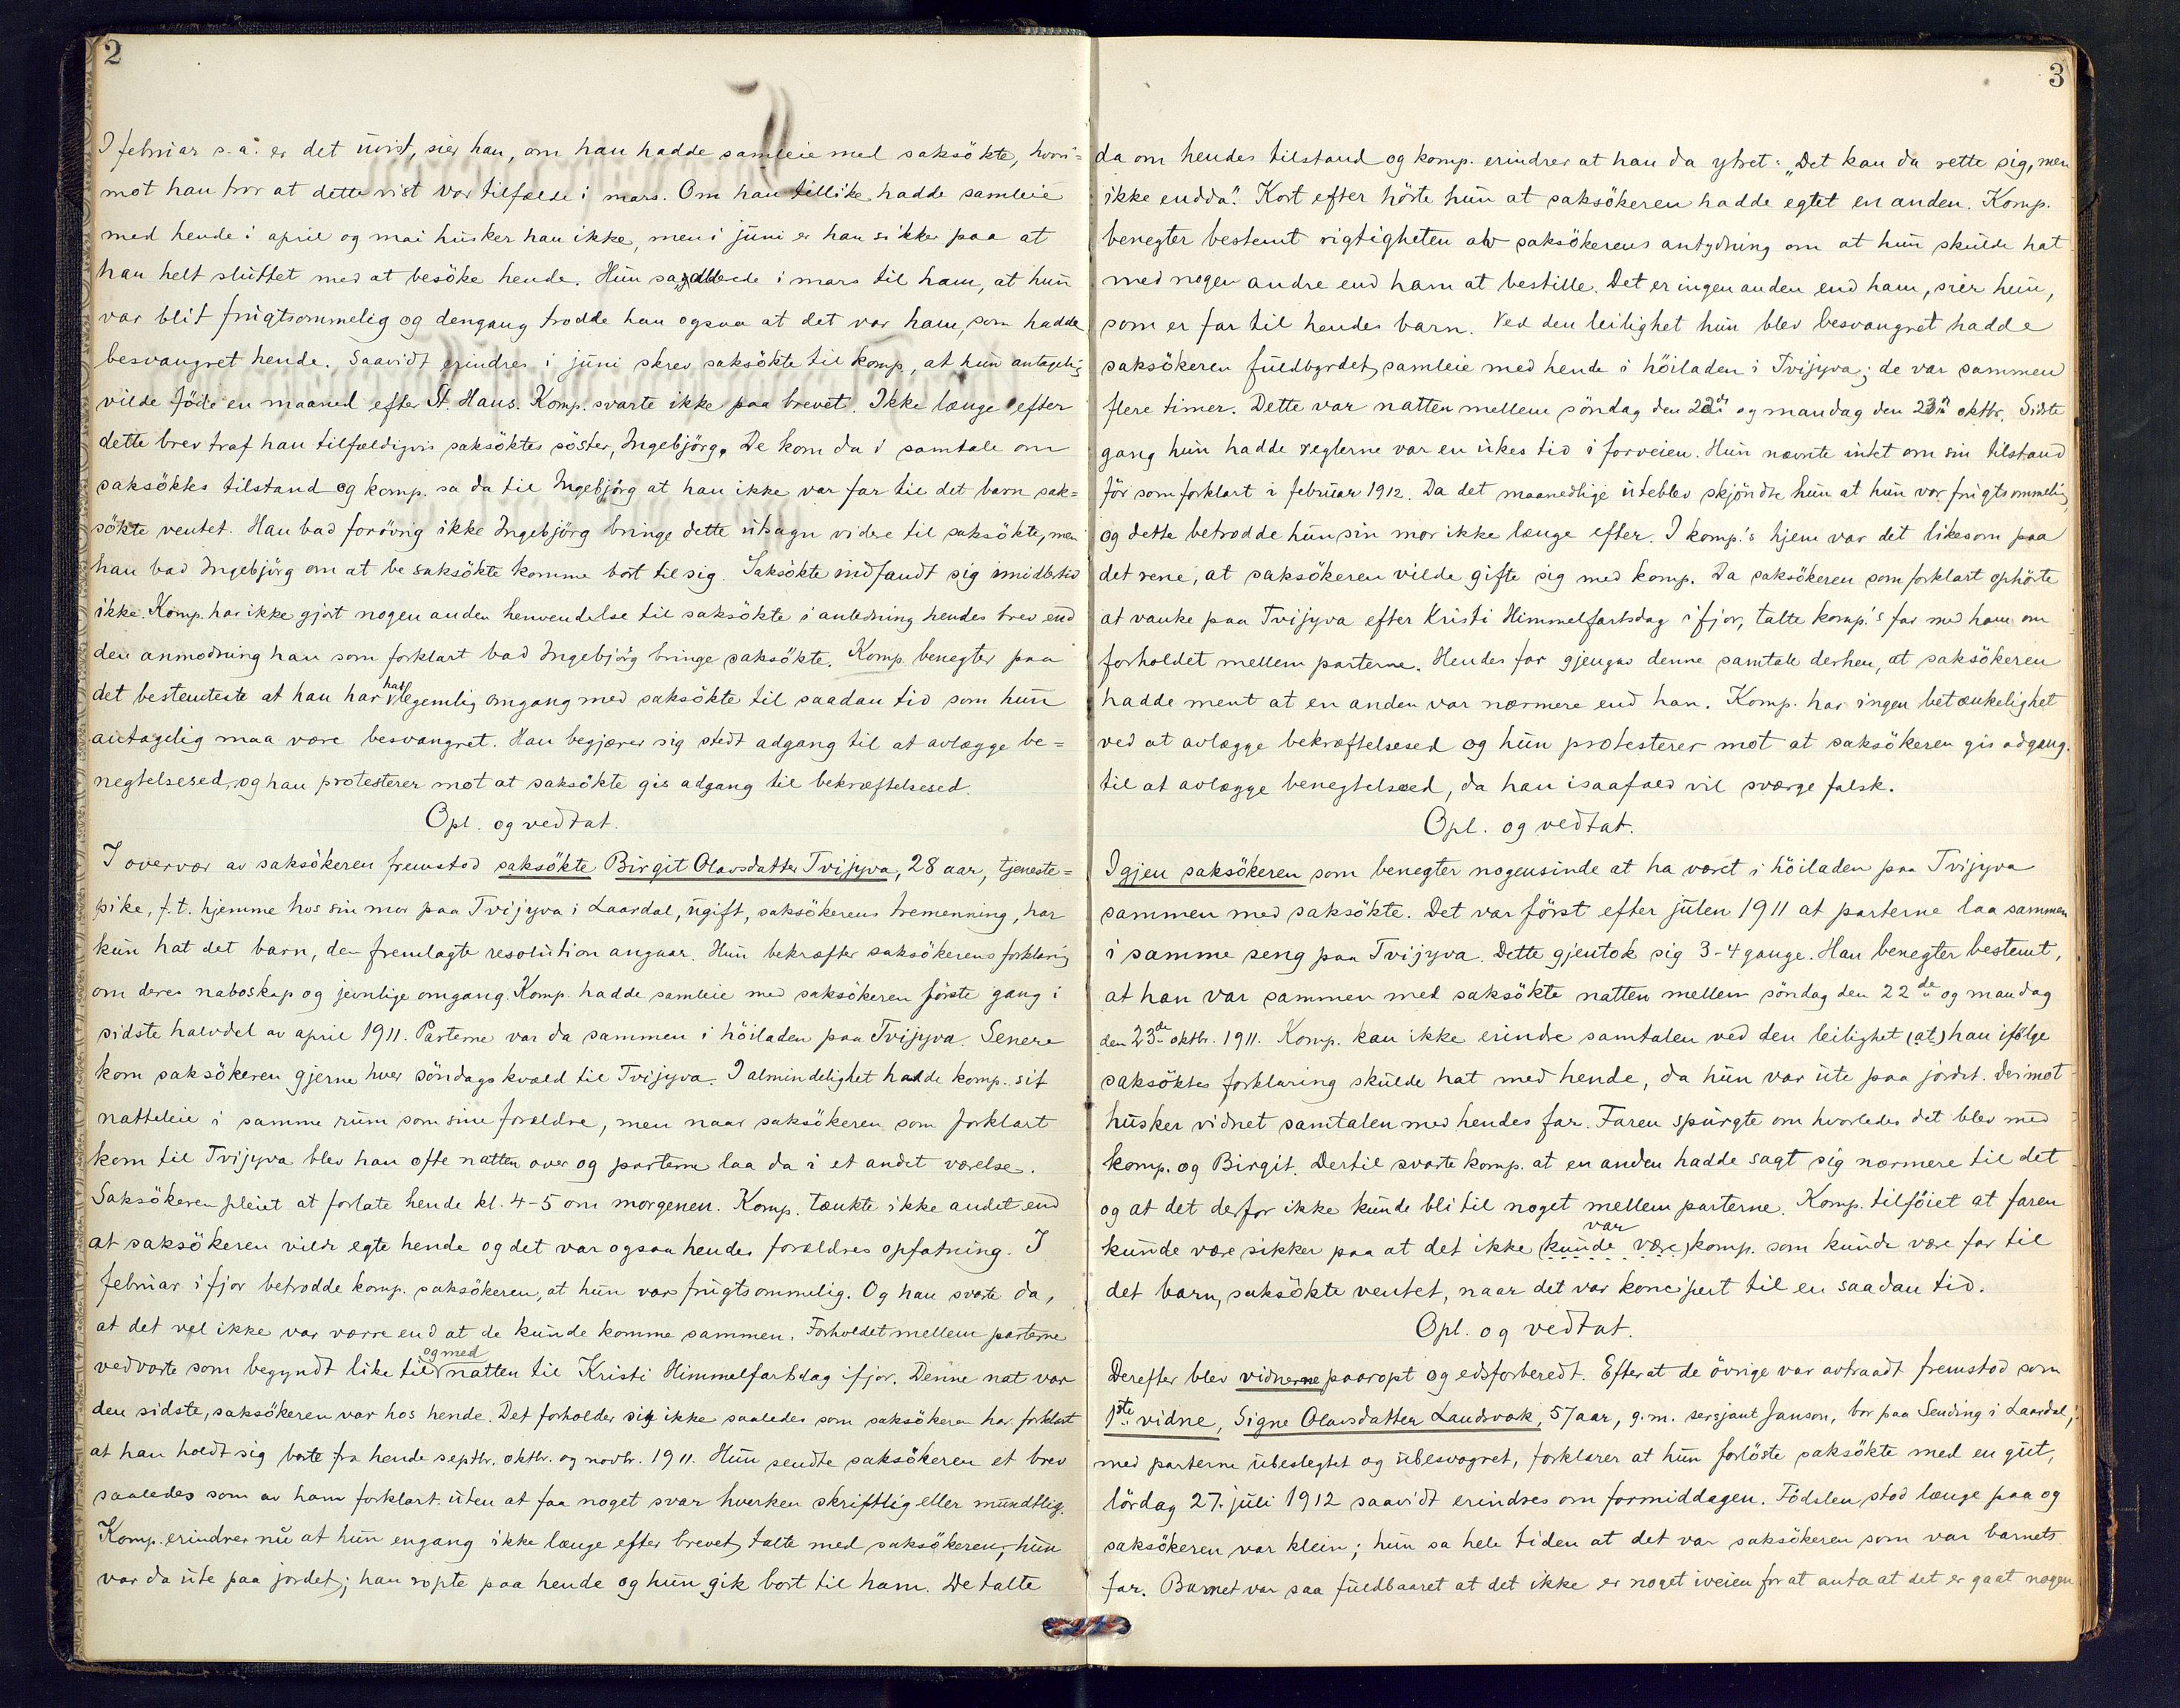 2
I februar s. a. er det uvist, sier han, om han hadde samleie med saksökte, hvori-
mot han tror at dette vist var tilfælde i mars. Om han tillike hadde samleie
med hende i april og mai husker han ikke, men i juni er han sikker paa at
han helt sluttet med at besöke hende. Hun sa allerede i mars til ham, at hun
var blit frugtsommelig og dengang trodde han ogsaa at det var ham, som hadde
besvangret hende. Saavidt erindres i juni skrev saksökte til komp., at hun antagelig
vilde föde en maaned efter St Hans. Komp. svarte ikke paa brevet. Ikke længe efter
dette brev traf han tilfældigvis saksöktes söster, Ingebjörg. De kom da i samtale om
saksöktes tilstand og komp. sa da til Ingebjörg at han ikke var far til det barn sak-
sökte ventet. Han bad forövrig ikke Ingebjörg bringe dette utsagn videre til saksökte, men
han bad Ingebjörg om at be saksökte komme bort til sig. Saksökte indfandt sig imidlertid
ikke. Komp. har ikke gjort nogen anden henvendelse til saksökte i anledning hendes brev end
den anmodning han som forklart bad Ingebjörg bringe saksökte. Komp. benegter paa
det bestemteste at han har hat legemlig omgang med saksökte til saadan tid som hun
antagelig maa være besvangret. Han begjærer sig stedt adgang til at avlægge be-
negtelsesed, og han protesterer mot at saksökte gis adgang til bekræftelsesed.
Opl. og vedtat.
I overvær av saksökeren fremstod saksökte Birgit Olavsdatter Tvijyva, 28 aar, tjeneste-
pike, f. t. hjemme hos sin mor paa Tvijyva i Laardal, ugift, saksökerens tremenning, har
kun hat det barn, den fremlagte resolution angaar. Hun bekræfter saksökerens forklaring
om deres naboskap og jevnlige omgang. Komp. hadde samleie med saksökeren förste gang i
sidste halvdel av april 1911. Parterne var da sammen i höiladen paa Tvijyva. Senere
kom saksökeren gjerne hver söndags kvæld til Tvijyva. I almindelighet hadde komp. sit
natteleie i samme rum som sine forældre, men naar saksökeren som forklart
kom til Tvijyva blev han ofte natten over og parterne laa da i et andet værelse.
Saksökeren pleiet at forlate hende kl. 4-5 om morgenen. Komp. tænkte ikke andet end
at saksökeren vilde egte hende og det var ogsaa hendes forældres opfatning. I
februar i fjor betrodde komp. saksökeren, at hun var frugtsommelig. Og han svarte da,
at det vel ikke var værre end at de kunde komme sammen. Forholdet mellem parterne
vedvarte som begyndt like til og med natten til Kristi Himmelfartsdag ifjor. Denne nat var
den sidste, saksökeren var hos hende. Det forholder sig ikke saaledes som saksökeren har forklart
at han holdt sig borte fra hende septbr. oktbr. og novbr. 1911. Hun sendte saksökeren et brev
saaledes som av ham forklart uten at faa noget svar hverken skriftlig eller mundtlig.
Komp. erindrer nu at hun engang ikke længe efter brevet talte med saksökeren; hun
var da ute paa jordet; han ropte paa hende og hun gik bort til ham. De talte
3
da om hendes tilstand og komp. erindrer at han da ytret: „Det kan da rette sig, men
ikke endda". Kort efter hörte hun at saksökeren hadde egtet en anden. Komp.
benegter bestemt rigtigheten av saksökerens antydning om at hun skulde hat
med nogen andre end ham at bestille. Det er ingen anden end ham, sier hun,
som er far til hendes barn. Ved den leilighet hun blev besvangret hadde
saksökeren fuldbyrdet samleie med hende i höiladen i Tvijyva; de var sammen
flere timer. Dette var natten mellem söndag den 22de og mandag den 23de oktbr. Sidste
gang hun hadde reglerne var en ukes tid i forveien. Hun nævnte intet om sin tilstand
för som forklart i februar 1912. Da det maanedlige uteblev skjöndte hun at hun var frugtsommelig
og dette betrodde hun sin mor ikke længe efter. I komp.'s hjem var det likesom paa
det rene, at saksökeren vilde gifte sig med komp. Da saksökeren som forklart ophörte
at vanke paa Tvijyva efter Kristi Himmelfartsdag i fjor, talte komp.'s far med ham om
forholdet mellem parterne. Hendes far gjengav denne samtale derhen, at saksökeren
hadde ment at en anden var nærmere end han. Komp. har ingen betænkelighet
ved at avlægge bekræftelsesed og hun protesterer mot at saksökeren gis adgang
til at avlægge benegtelsesed, da han isaafald vil sværge falsk.
Opl. og vedtat.
Igjen saksökeren som benegter nogensinde at ha været i höiladen paa Tvijyva
sammen med saksökte. Det var först efter julen 1911 at parterne laa sammen
i samme seng paa Tvijyva. Dette gjentok sig 3-4 gange. Han benegter bestemt,
at han var sammen med saksökte natten mellem söndag den 22de og mandag
den 23de oktbr. 1911. Komp. kan ikke erindre samtalen ved den leilighet (at) han ifölge
saksöktes forklaring skulde hat med hende, da hun var ute paa jordet. Derimot
husker vidnet samtalen med hendes far. Faren spurgte om hvorledes det blev med
komp. og Birgit. Dertil svarte komp. at en anden hadde sagt sig nærmere til det
og at det derfor ikke kunde bli til noget mellem parterne. Komp. tilföiet at faren
kunde være sikker paa at det ikke (kunde være) var komp. som kunde være far til
det barn, saksökte ventet, naar det var koncipert til en saadan tid.
Opl. og vedtat.
Derefter blev vidnerne paaropt og edsforberedt. Efterat de övrige var avtraadt fremstod som
1ste vidne, Signe Olavsdatter Landsvok, 57 aar, g. m. sersjant Janson, bor paa Sending i Laardal,
med parterne ubeslegtet og ubesvogret, forklarer at hun forlöste saksökte med en gut,
lördag 27. juli 1912 saavidt erindres om formiddagen. Födslen stod længe paa og
saksökeren var klein; hun sa hele tiden at det var saksökeren som var barnets
far. Barnet var saa fuldbaaret at det ikke er noget iveien for at anta at det er gaat nogen